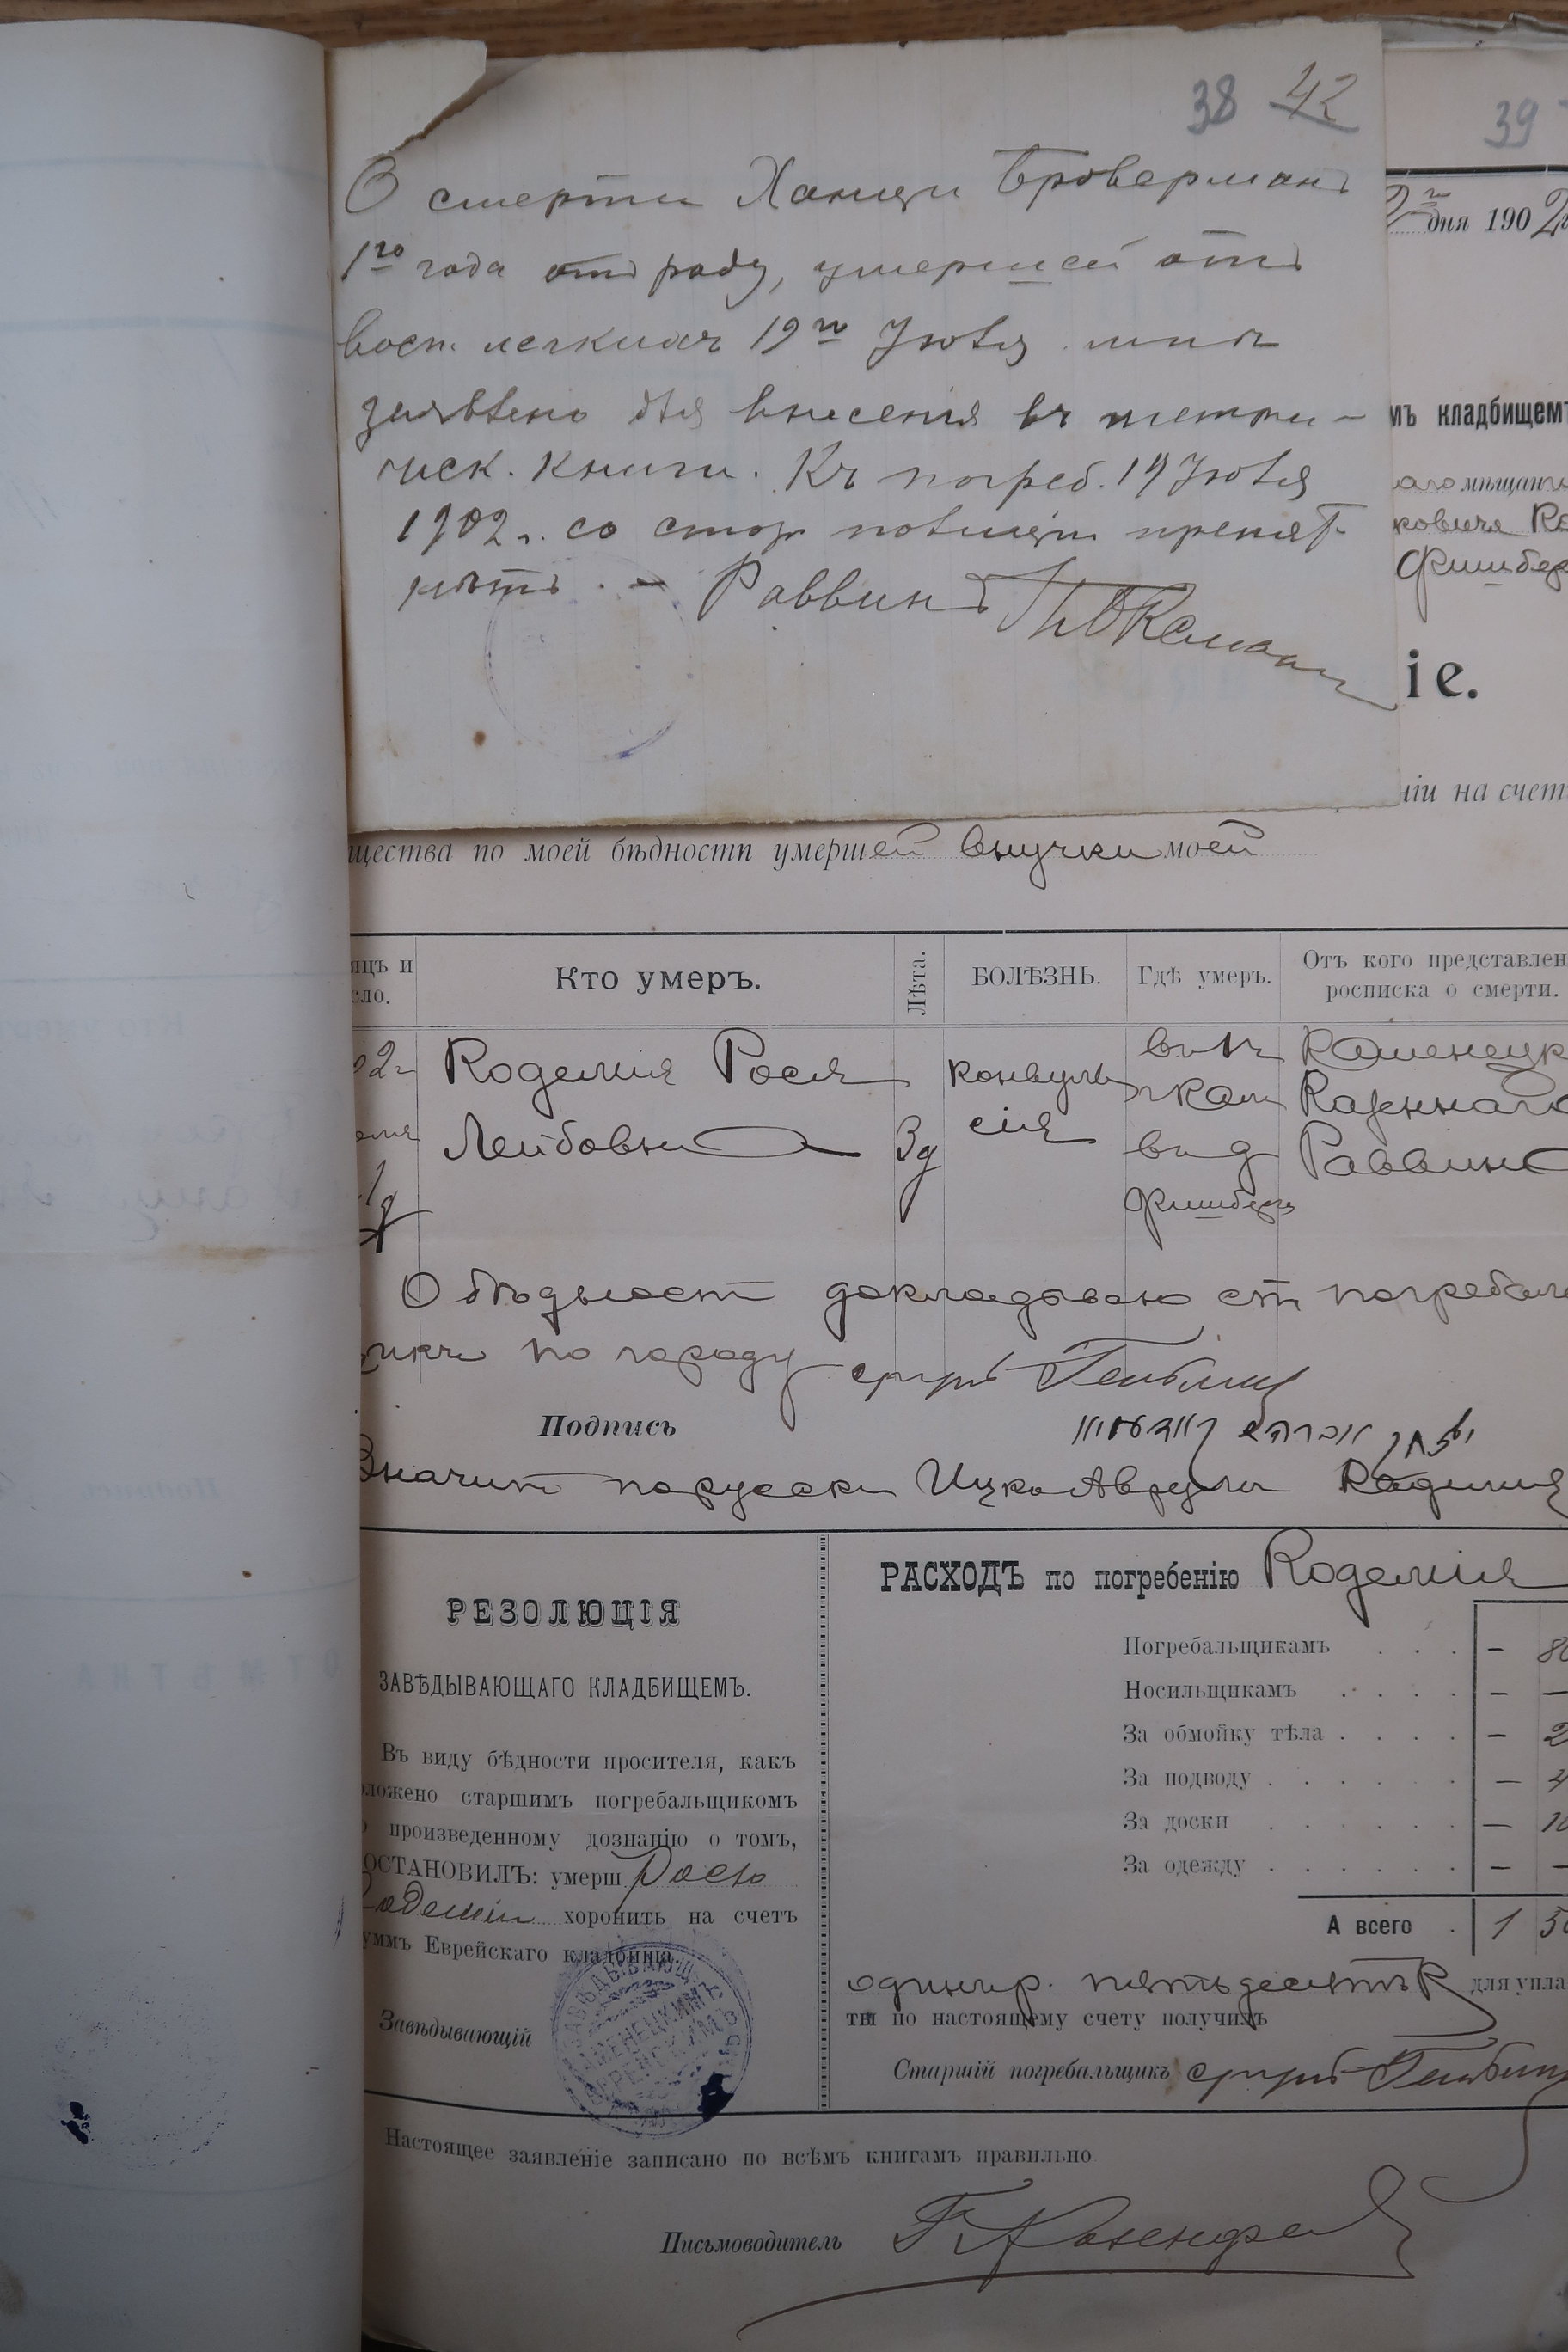 38 42
О смерти Ханци Броверманъ
1го года отъ роду, умершей отъ
восп. легкихъ 19го Іюля мнѣ
заявлено для внесенія въ метри-
ческ. книги. Къ погреб. 19 Іюля
1902 г. со стор. полиціи препят.
нѣтъ. - Раввинъ
39
дня 1902
мъ кладбищемъ
аго мѣщани
ковича
Фишбер
іе.
ніи на счетъ
щества по моей бѣдности умершей внучки моей
яцъ и
сло.
Кто умеръ.
Лѣта.
БОЛѢЗНЬ.
Гдѣ умеръ.
Отъ кого представлен
росписка о смерти.
02г
Кодемія Рося
Лейбовна
3д
конвуль
сія
Фишберга
Каменецк
Казеннаго
Раввина
О бѣдност докладываю ст погребаль
щикъ по городу сруль
Подпись
Значит порусски Ицко Аврум Кодимия
РЕЗОЛЮЦІЯ
ЗАВѢДЫВАЮЩАГО КЛАДБИЩЕМЪ.
Въ виду бѣдности просителя, какъ
оложено старшимъ погребальщикомъ
о произведенному дознанію о томъ,
ОСТАНОВИЛЪ: умерш. Росю
Кодемію хоронить на счетъ
уммъ Еврейскаго кладбища.
Завѣдывающій
РАСХОДЪ по погребенію Кодемія
Погребальщикамъ . . . — 80
Носильщикамъ . . . . — —
За обмойку тѣла . . . . — 2
За подводу . . . . . . — 4
За доски . . . . . . — 10
За одежду . . . . . . — —
А всего . 1 50
одинъ р. пятьдесятъ К для упла
ты по настоящему счету получилъ
Старшій погребальщикъ сруль
Настоящее заявленіе записано по всѣмъ книгамъ правильно
Письмоводитель